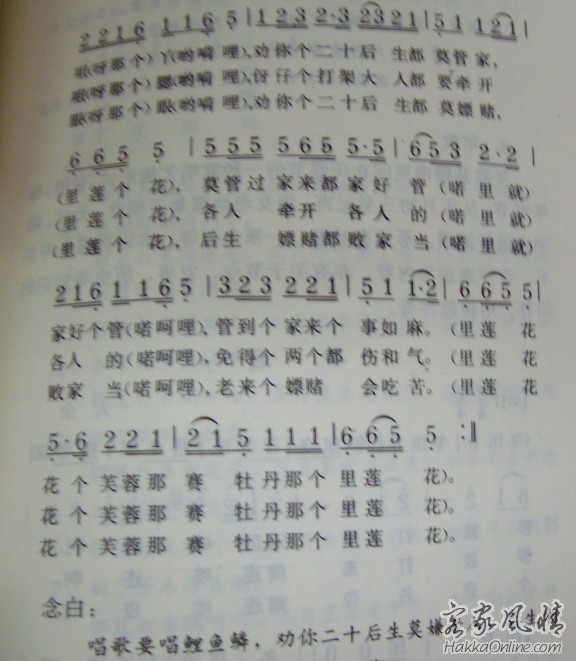 2216 116 5 | 123 2·3 2321 | 51 121 |
哟嗬哩),劝你个二十后 生都 莫管家,
哟嗬哩),伢仔个打架大 人都 要牵开
哟嗬哩),劝你个二十后 生都 莫嫖赌,
665 5 | 555 565 5·5 | 653 2·2 |
(里莲个 花)、莫管过 家来都 家好 管(喏里就)
(里莲个 花)、各人 牵开 各人 的(喏里就)
(里莲个 花)、后生 嫖赌都 败家 当(喏里就)
2161 165 | 323 221 | 51 1·2 | 665 5 |
家好个管(喏呵哩),管到个 家来个 事如 麻。(里莲 花
各人 的(喏呵哩),免得个 两个都 伤和 气。(里莲 花
败家 当(喏呵哩),老来个 嫖赌 会吃 苦。(里莲 花
5·6 221 | 21 5 111 | 6 65 5 :||
花个 芙蓉那 赛 牡丹那个 里莲 花)。
花个 芙蓉那 赛 牡丹那个 里莲 花)。
花个 芙蓉那 赛 牡丹那个 里莲 花)。
念白:
唱歌要唱鲤鱼鳞,劝你二十后生莫嫌
客家风情
HakkaOnline.com